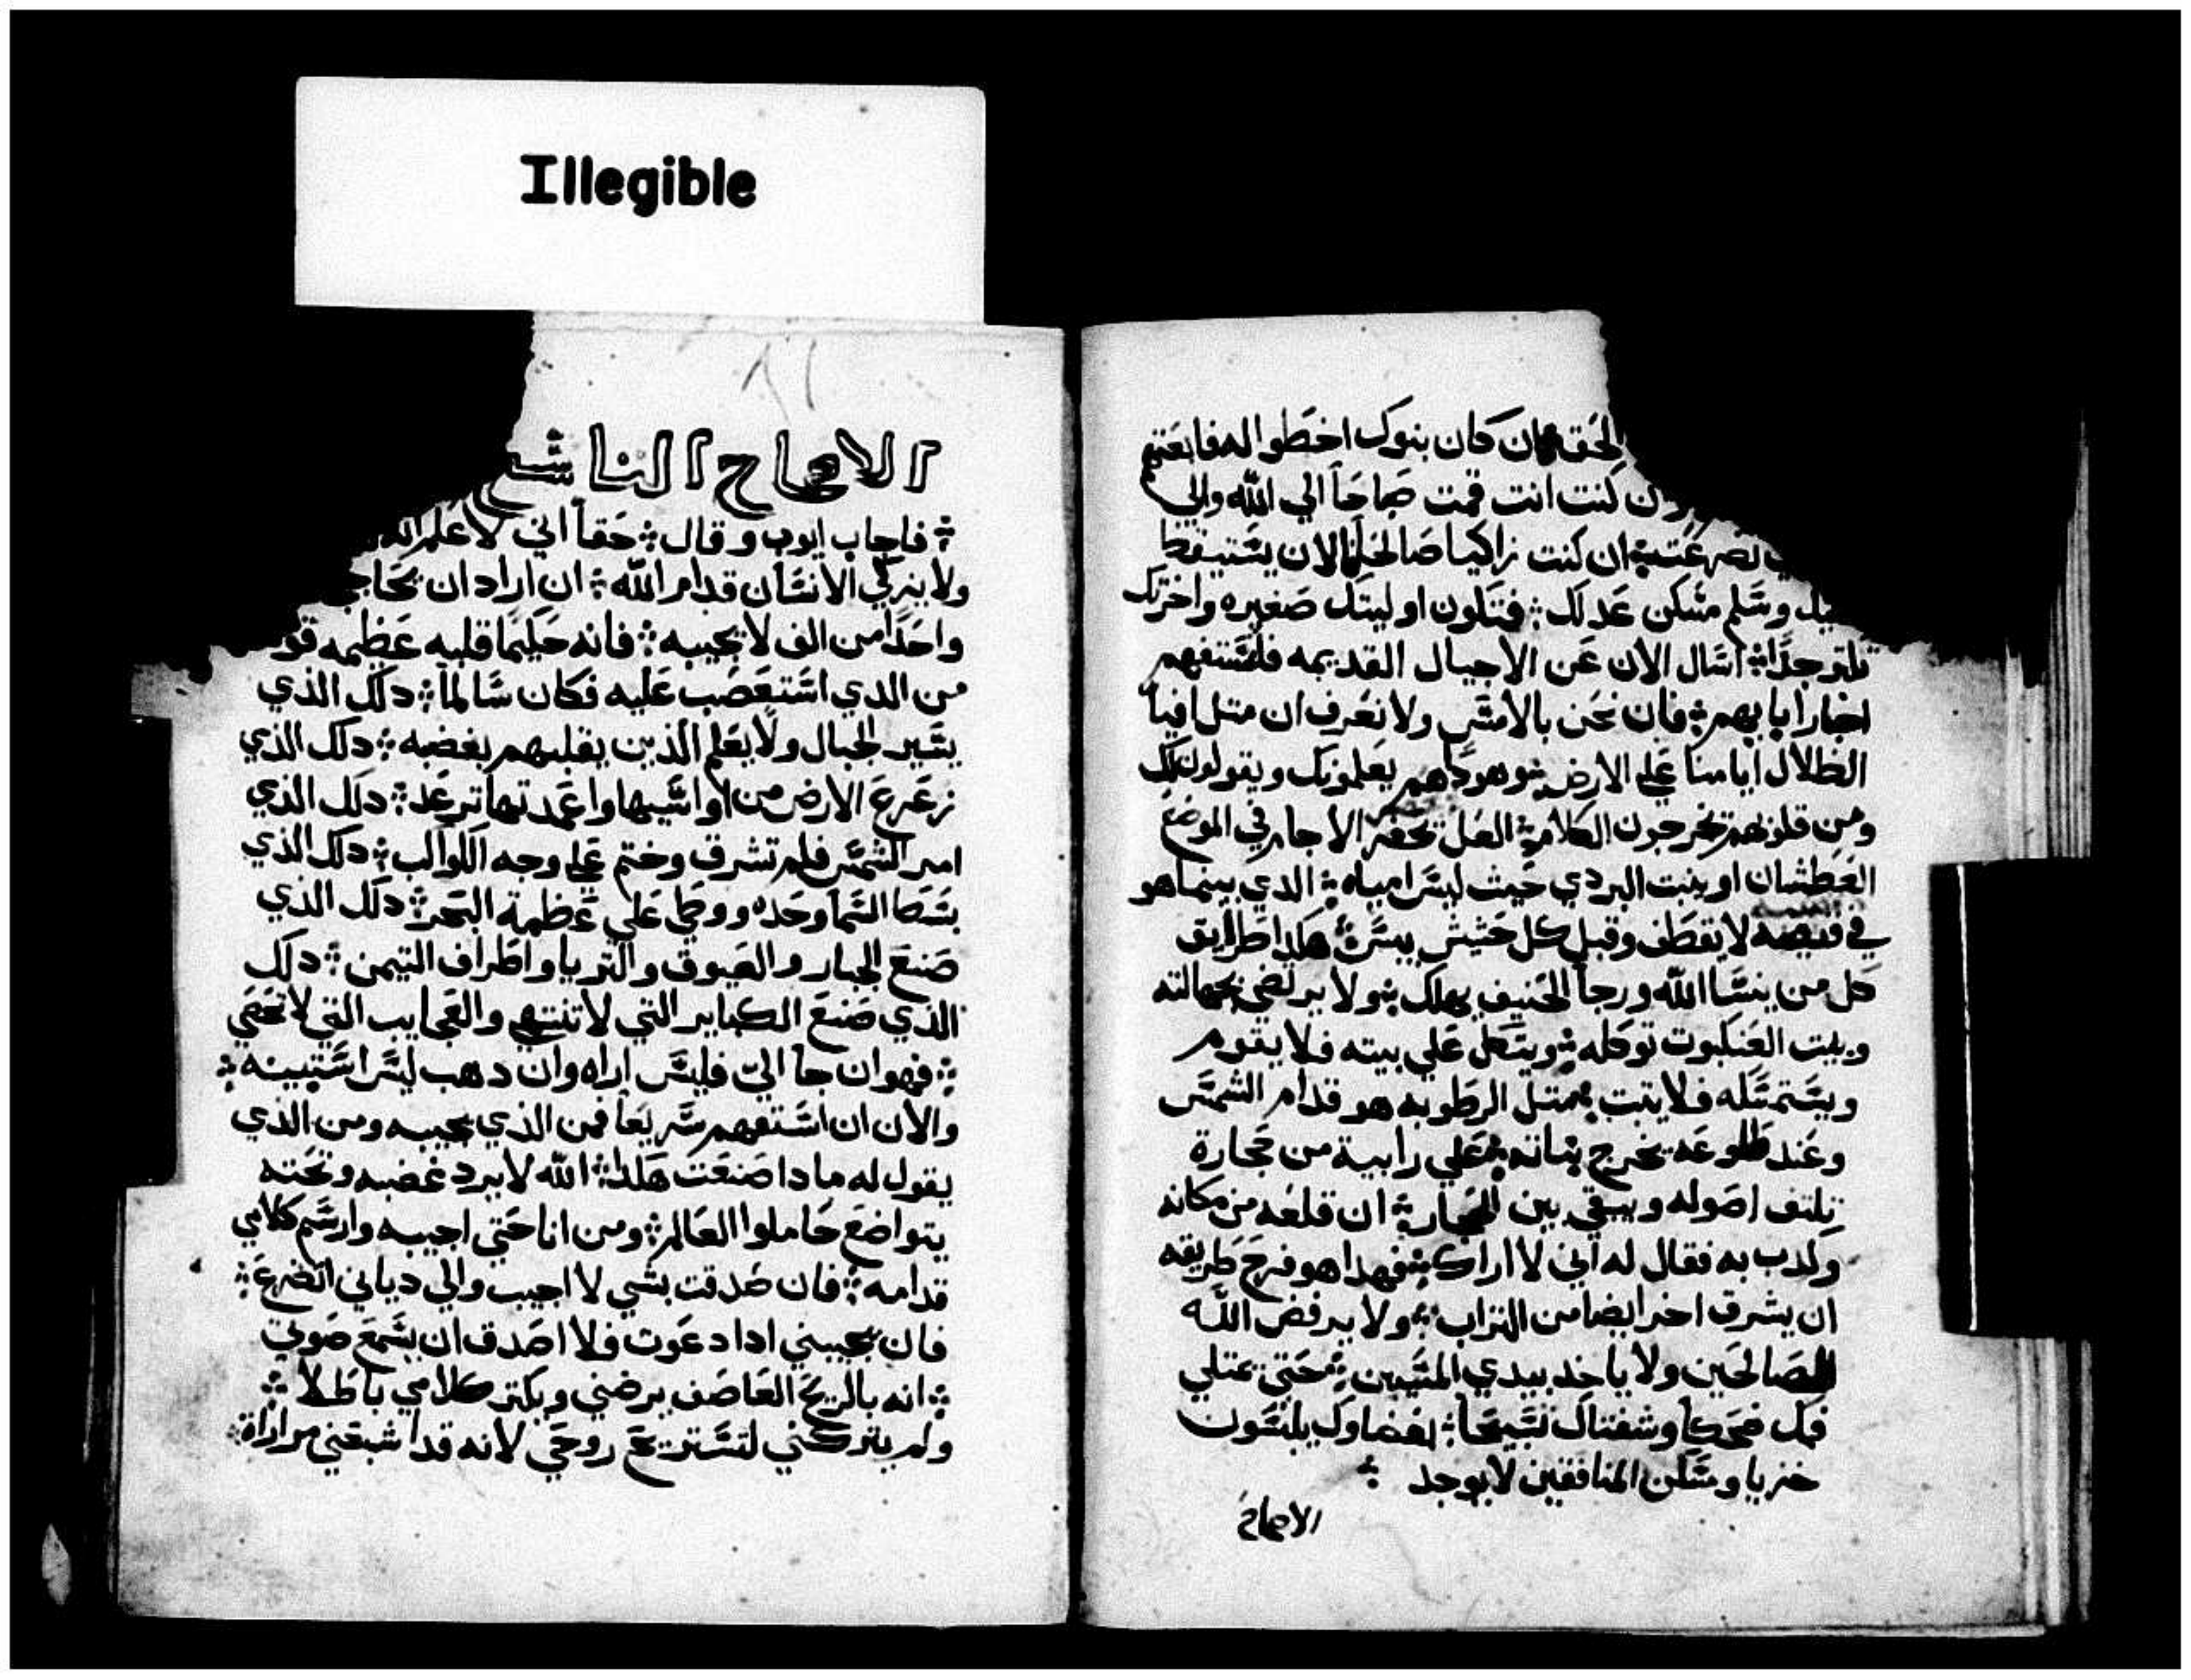 Illegible
لحق ان كان بنوك اخطوا له فابعتهم
كنت انت قمت صباحاً الي الله والي
تضرعت ان كنت زاكيا صالحاً الان يستيقظ
وسلم مسكن عدلك فتكون اوليتك صغيره واخرتك
تكتر جداً اسال الان عن الاجيال القديمه فلتستفهم
اخبار ابايهم فان نحن بالامس ولا نعرف ان متل افيا
الظلال ايامنا علي الارض وهودا هم يعلمونك ويقولون لك
ومن قلوبهم يخرجون الكلام العل تحضر الاجام في الموضع
العطشان او ينبت البردي حيث ليس امياه الدي بينما هو
في لا يقطف وقبل كل حشيش ييبس هكدا طرايق
كل من ينسا الله ورجا الحنيف يهلك ولا يرتضي بجهالته
وبيت العنكبوت توكله ويتكل علي بيته فلا يقوم
ويستمسكه فلا يتبت بمتل الرطوبه هو قدام الشمس
وعند طلوعه يخرج نباته علي رابية من حجارة
تلتف اصوله ويبقي بين الحجارة ان قلعه من مكانه
وكدب به فقال له اني لا اراك فهدا هو فرح طريقه
ان يشرق اخر ايضا من التراب ولا يرفض الله
الصالحين ولا ياخد بيدي المسيين حتي تمتلي
فمك ضحكاً وشفتاك تسبيحاً بغضاوك يلبسون
خزيا ومسكن المنافقين لا يوجد
الاصحاح
٨٦
الاصحاح التاسع
فاجاب ايوب وقال حقاً اني لاعلم انه
ولا يتزكي الانسان قدام الله ان اراد ان يحاج
واحداً من الف لا يجيبه فانه حكيماً قلبه عظيمه قو
من الدي استعصب عليه فكان سالماً دلك الذي
يسير الجبال ولا يعلم الذين يقلبهم بغضبه دلك الذي
زعزع الارض من اواسيها واعمدتها ترعد دلك الذي
امر الشمس فلم تشرق وختم علي وجه الكواكب دلك الذي
بسط السما وحده ووطي علي عظمة البحر دلك الذي
صنع الجبار والعيوق والتريا واطراف التيمن دلك
الذي صنع الكباير التي لا تنتهي والعجايب التي لا تحصي
فهو ان جا الي فليس اراه وان دهب ليس استبينه
والان ان استفهم سريعاً فمن الذي يجيبه ومن الذي
يقول له مادا صنعت هكدا الله لا يرد غضبه وتحته
يتواضع حاملوا العالم ومن انا حتي اجيبه وارسم كلامي
قدامه فان صدقت بشي لا اجيب والي دياني اتضرع
فان يجيبني ادا دعوت فلا اصدق ان يسمع صوتي
انه بالريح العاصف يرضني ويكتر كلامي باطلاً
ولم يتركني لتستريح روحي لانه قد اشبعني مراراة